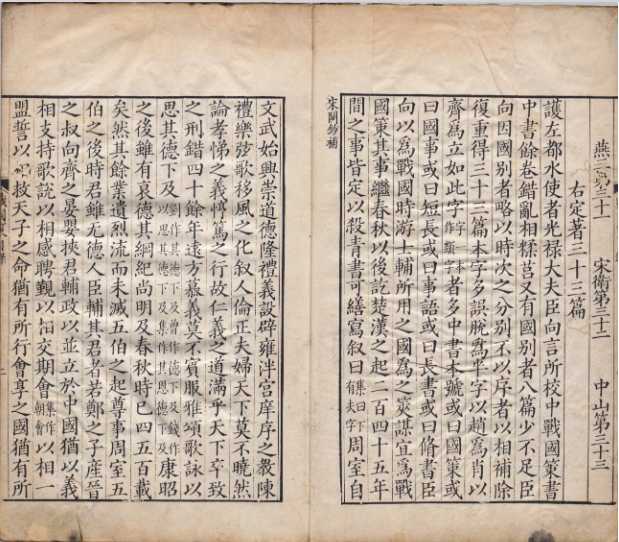 燕三第三十一 宋衛第三十二 中山第三十三
右定著三十三篇
護左都水使者光祿大夫臣向言所校中戰國策書
中書餘卷錯亂相糅莒又有國別者八篇少不足臣
向因國別者略以時次之分別不以序者以相補除
復重得三十三篇本字多誤脫為半字以趙為肖以
齊為立如此字一本作類字者多中書本號或曰國策或
曰國事或曰短長或曰事語或曰長書或曰脩書臣
向以為戰國時游士輔所用之國為之筴謀宜為戰
國策其事繼春秋以後訖楚漢之起二百四十五年
間之事皆定以殺青書可繕寫叙曰集曰下有夫字周室自
文武始興崇道德隆禮義設辟雍泮宮庠序之教陳
禮樂弦歌移風之化叙人倫正夫婦天下莫不曉然
論孝悌之義惇篤之行故仁義之道滿乎天下卒致
之刑錯四十餘年遠方慕義莫不賓服雅頌歌詠以
思其德下及劉作其德下及曾作德下及錢作以思其德下及集作其恩德下及康昭
之後雖有衰德其綱紀尚明及春秋時已四五百載
矣然其餘業遺烈流而未滅五伯之起尊事周室五
伯之後時君雖无德人臣輔其君者若鄭之子產晉
之叔向齊之晏嬰挾君輔政以並立於中國猶以義
相支持歌說以相感聘覲以相交期會集作朝會以相一
盟誓以相救天子之命猶有所行會享之國猶有所